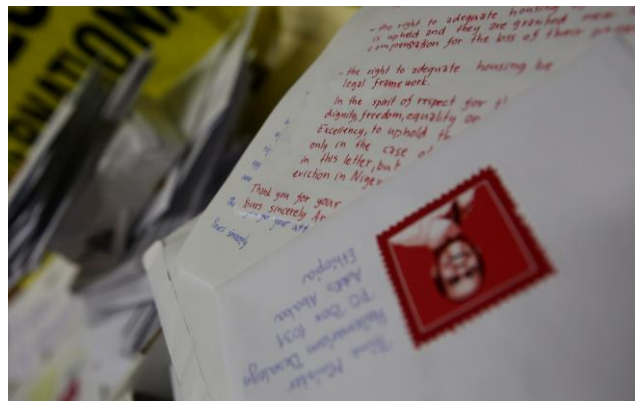 RNATIONA
- the right to adequate housing
is upheld and they are granted
compensation for the loss of their
- the right to adequate housing be
legal framework.
In the spirit of respect for
dignity, freedom, equality
Excellency, to uphold th
only in the case
in this letter, but
eviction in Niger
Thank you for your
for your
Yours sincerely
Prime Minister
Hailemariam Desalegn
PO Box 1031
Addis Ababa
Ethiopia